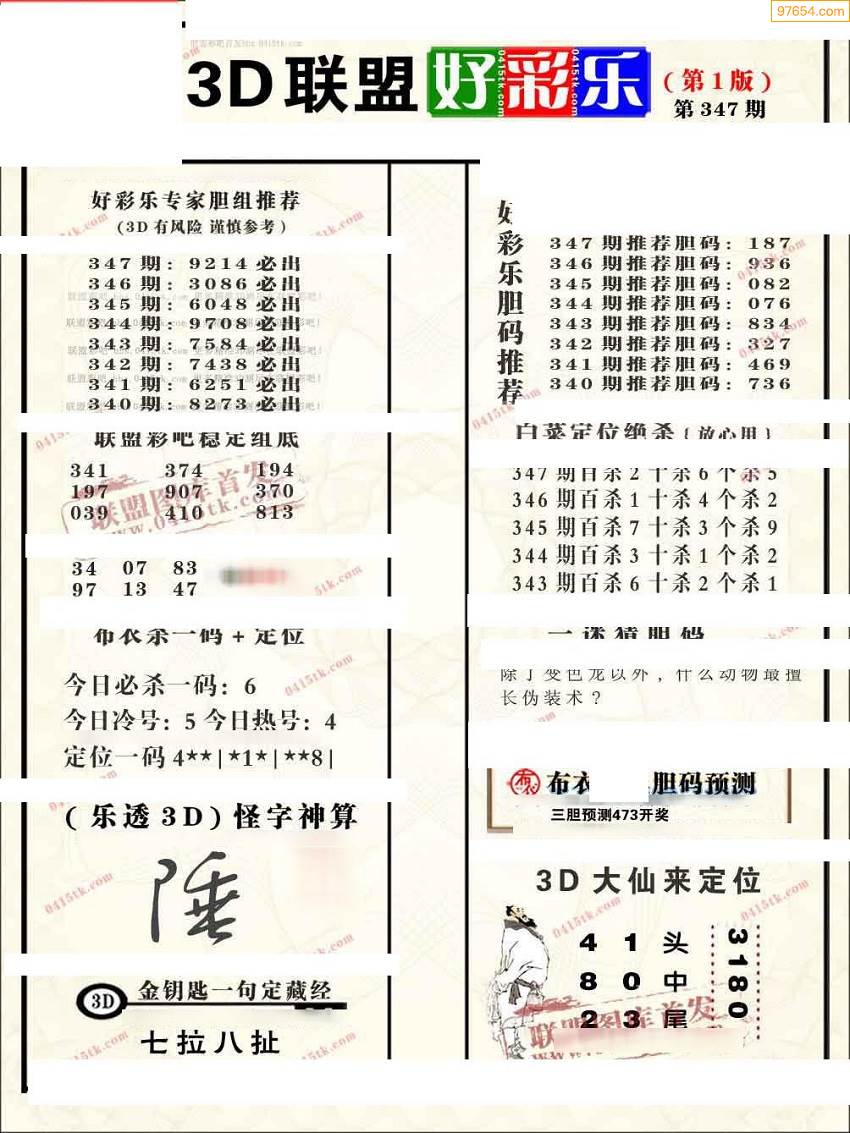 97654.com
3D联盟好彩乐
(第1版)
第347期
好彩乐专家胆组推荐
(3D有风险 谨慎参考)
347期: 9214必出
346期: 3086必出
345期: 6048必出
344期: 9708必出
343期: 7584必出
342期: 7438必出
341期: 6251必出
340期: 8273必出
联盟彩吧稳定组底
341 374 194
197 907 370
039 410 813
34 07 83
97 13 47
布衣杀一码+定位
今日必杀一码: 6
今日冷号: 5 今日热号: 4
定位一码4**|*1*|**8|
(乐透3D)怪字神算
3D 金钥匙一句定藏经
七拉八扯
好彩乐胆码推荐
347期推荐胆码: 187
346期推荐胆码: 936
345期推荐胆码: 082
344期推荐胆码: 076
343期推荐胆码: 834
342期推荐胆码: 327
341期推荐胆码: 469
340期推荐胆码: 736
白菜定位绝杀{放心用}
347期百杀2十杀6个杀5
346期百杀1十杀4个杀2
345期百杀7十杀3个杀9
344期百杀3十杀1个杀2
343期百杀6十杀2个杀1
一迷猜胆码
除了变色龙以外, 什么动物最擅
长伪装术?
布衣 胆码预测
三胆预测473开奖
3D大仙来定位
4 1 头
8 0 中
2 3 尾
3180
联盟图库首发
www.0415tk.com
0415tk.com